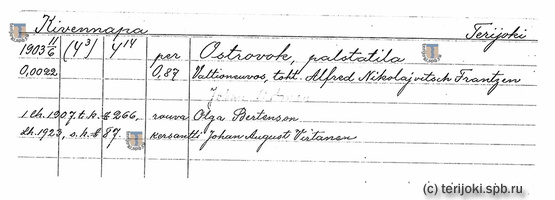 Kivennapa Terijoki
1903 11/6 (4³) 4¹⁴ per Ostrovok, palstatila
0,0022 0,87 Valtioneuvos, toht. Alfred Nikolajvitsch Frantzen
1 ch. 1907. t. k. § 266, rouva Olga Bertenson
Lh. 1923, s. k. § 87. kersantti Johan August Virtanen
(c) terijoki.spb.ru